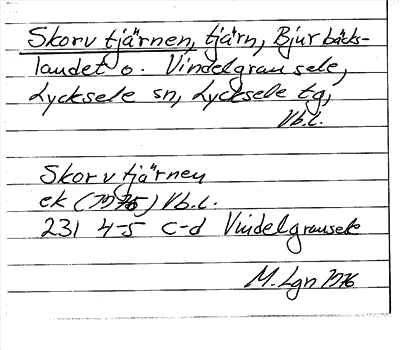 Skorvtjärnen, tjärn, Bjurbäcks-
landet o. Vindelgransele,
Lycksele sn, Lycksele tg,
Vb.l.
Skorvtjärnen
ek (1975) Vb.l.
231 4-5 c-d Vindelgransele
M. Lgn 1976